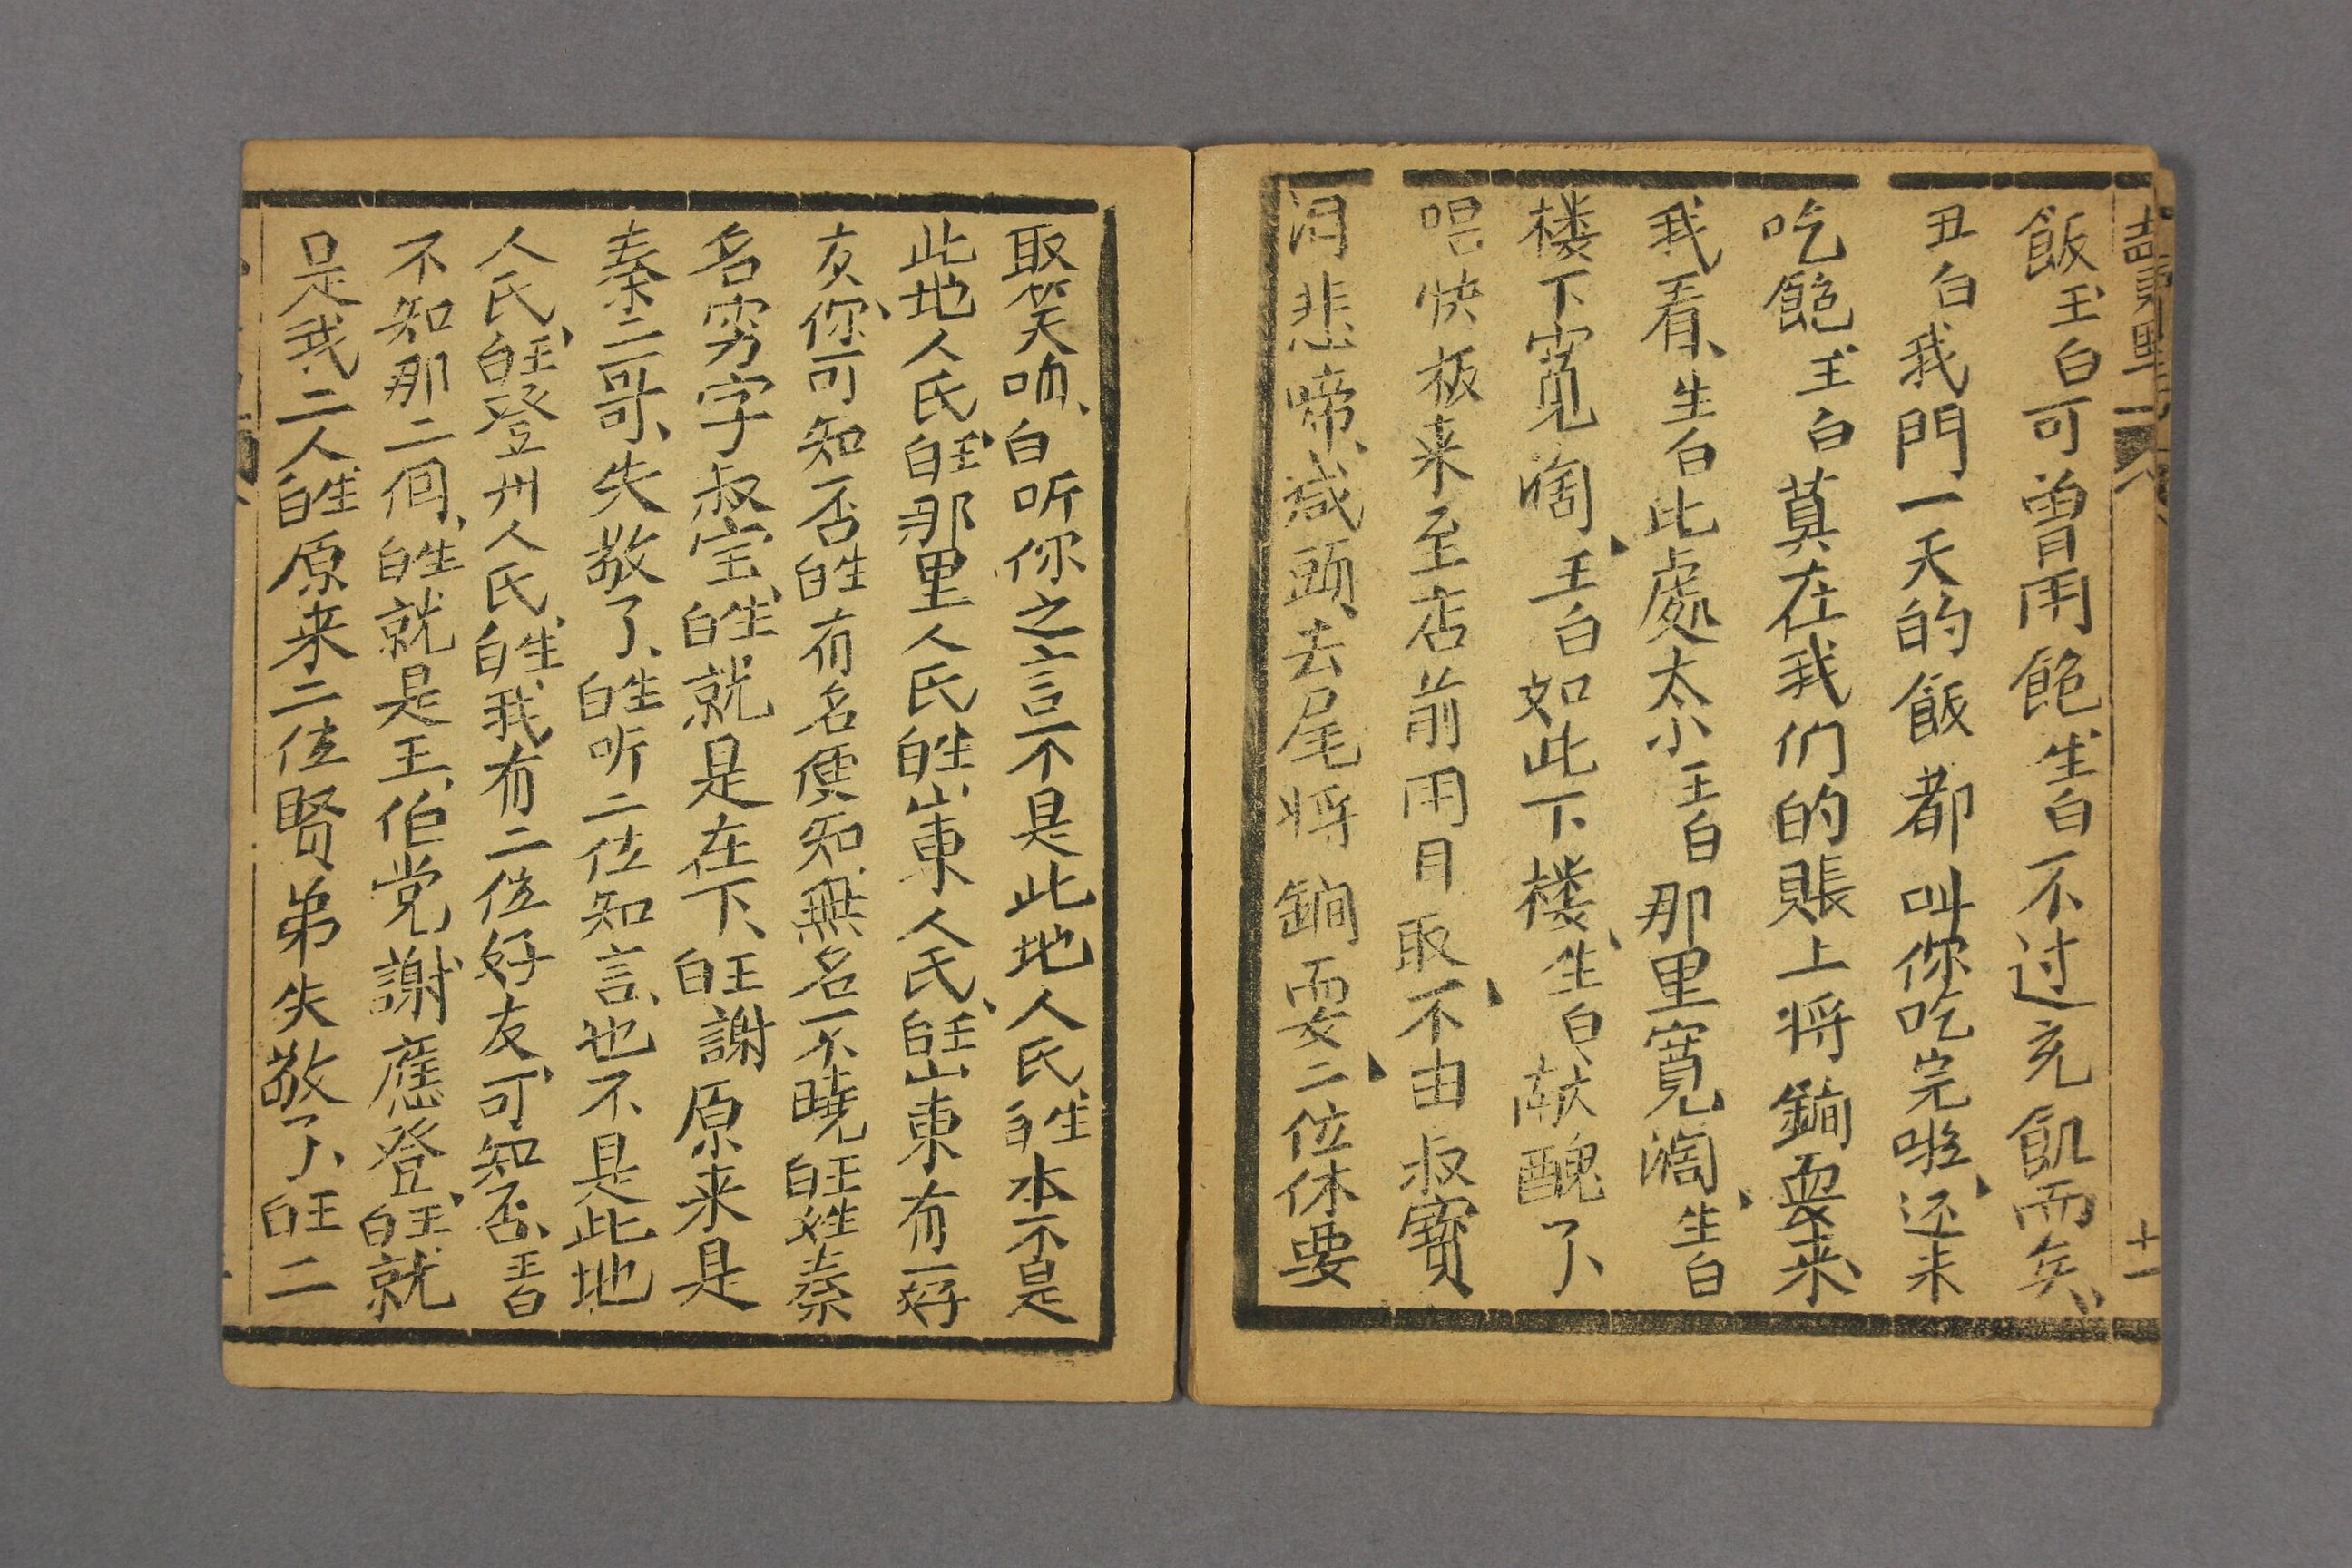 飯王白可曾用飽生白不过充飢而矣
丑白我門一天的飯都叫你吃完啦还未
吃飽王白莫在我们的賬上将鐗耍来
我看生白此處太小王白那里寛濶生白
楼下寛阔王白如此下楼生白献醜了
唱快板来至店前用目取不由叔寳
泪悲啼減頭去尾将鐗耍二位休要
取笑呐白听你之言不是此地人氏生白本不是
此地人氏王白那里人氏生白山東人氏王白山東有一好
友你可知否生白有名便知無名不曉王白姓秦
名穷字叔宝生白就是在下王白謝原来是
秦二哥失敬了生白听二位知言也不是此地
人氏王白登州人氏生白我有二位好友可知否王白
不知那二個生白就是王伯党謝應登王白就
是我二人生白原来二位賢弟失敬了王白二
十一